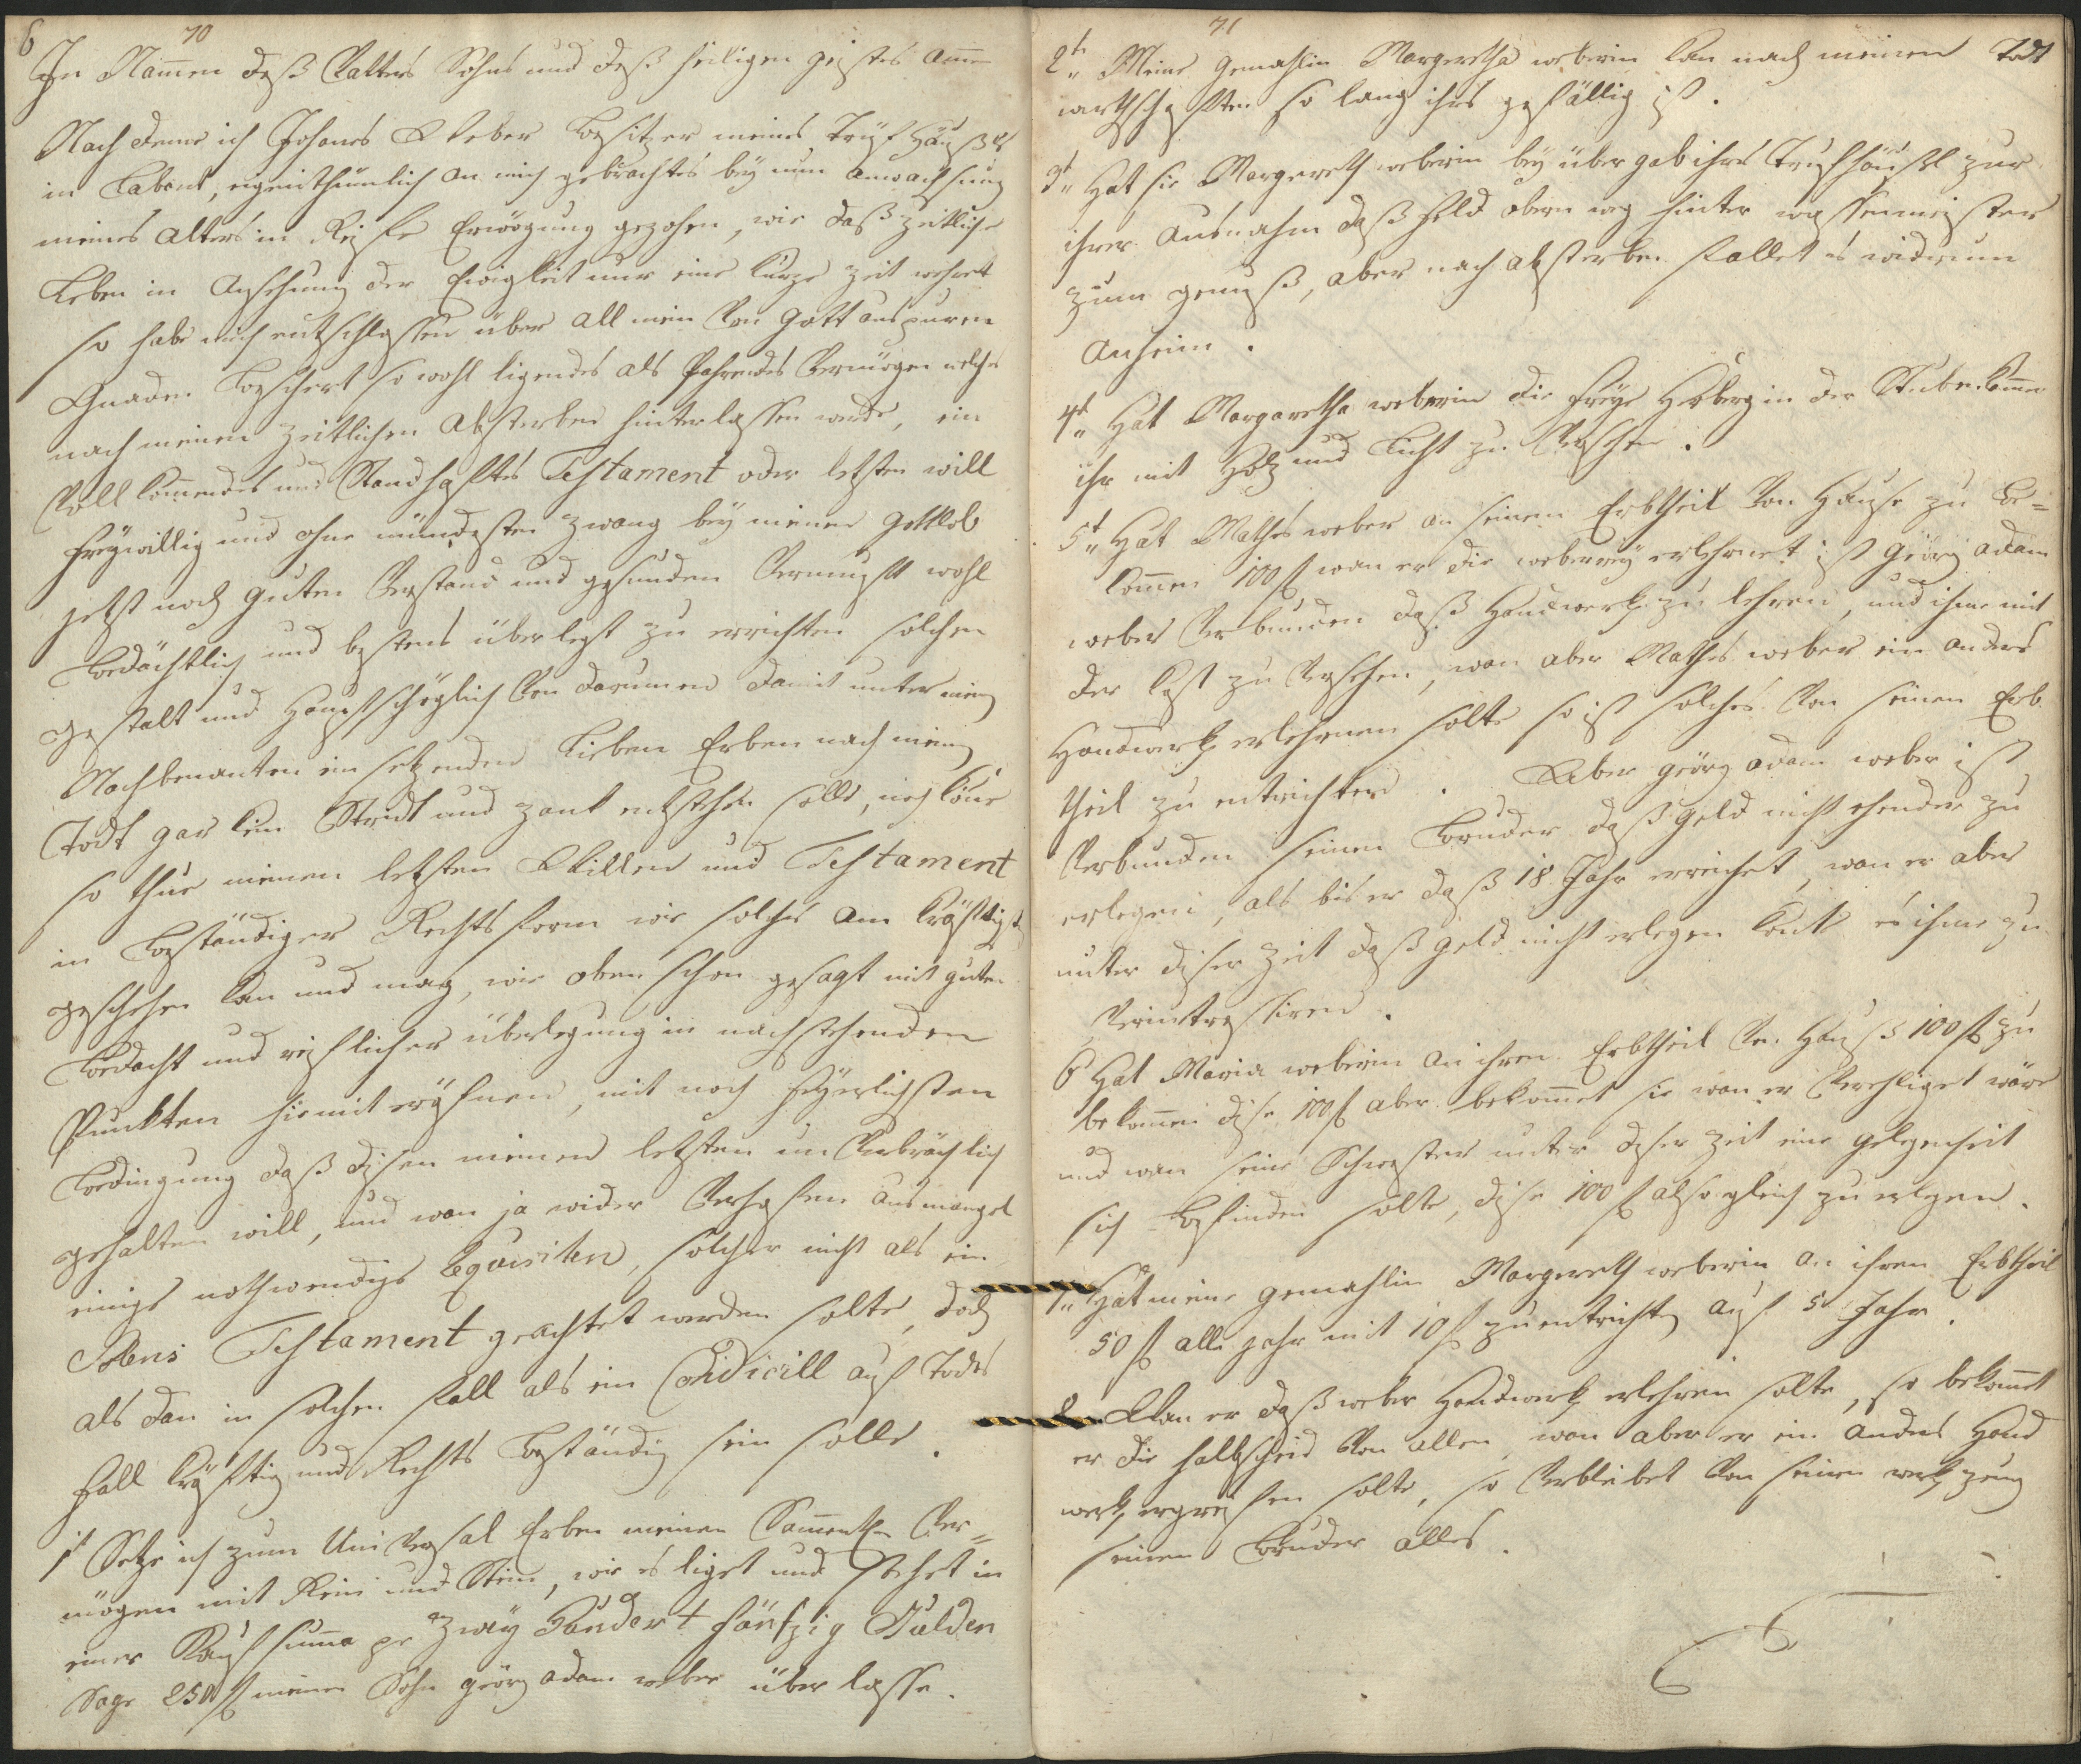 6
70
In Nammen deß Vatters Sohns und deß heiligen geistes amen
Nach deme ich Johanes Weber besitzer meines Trüpf Häußls
in Labant, eigenthumlich an mich gebrachtes bey nun anwachsung
meines alters in Reiffe Erwögung gezohen, wie daß zeitliche
Leben in Ansehung der Ewigkeit nur eine kurze Zeit wehret
so habe mich entschlossen über all mein Von Gott aus puren
Gnaden beschert so wohl ligendes als Fahrendes Vermögen welches
nach meinen zeitlichen Absterben hinterlassen werde, ein
Vollkommendes und Standhaftes Testament oder letzten will
freywillig und ohne mündesten zwang bey meiner gottlob
jetzt noch guten Verstand und gesunden Vernunft wohl
bedächtlich und bestens überlegt zu errichten solchen
gestalt und Hauptsächlich Von darumen damit unter meinen
Nachbenanten ein setzenden Lieben Erben nach meinen
Todt gar kein Streit und zank entstehen solle, noch könne
so thue meinen letzten Willen und Testament
in beständiger Rechts form wie solches am kräftigsten
geschehen kan und mag, wie oben schon gesagt mit guten
bedacht und reiflicher überlegung in nachstehenden
Punkten hiemit eröfnen, mit noch feyerlichsten
bedingung daß disen meinen letzten un Verbrüchlich
gehalten will, und wan ja wider Verhofen aus mangel
einiges nothwendiges Equisiten, solcher nicht als ein
Testament geachtet werden solte, doch
als dan in solchen fall als ein Codicill auf Todes
fall kräftig und Rechts beständig sein solle.
1t Setze ich zum Universal Erben meinen Sammentl Ver=
mögen mit Rein und Stein, wie es liget und stehet in
einer Kauf summa pr zwey Hundert fünfzig Gulden
Sage 250 f meinen Sohn georg adam weber über lasse.
71
2t Meine Gemahlin Margeretha weberin kan nach meinen Todt
wirthschaften so lang ihrs gefällig ist.
3t Hat sie Margereth weberin bey übergab ihres Trüpfhäußl zur
ihrer Ausnahm daß feld obern weg hinter wassenmeister
zum genuß, aber nach absterben fallet es widerum
anheim.
4t Hat Margaretha weberin die freye Herberg in der Stuben kammer
ihr mit Holz und Licht zu Versehen.
5t Hat Mathes weber an seinem Erbtheil Von Hause zu be=
kommen 100 f wan er die weberey erlehrnet ist georg adam
weber Verbunden daß Handwerk zu lehren, und ihme mit
der kost zu Versehen, wan aber Mathes weber ein anders
Handwerk erlehrnen solte so ist solches Von seinen Erb
theil zu entrichten. Aber georg adam weber ist
Verbunden seinen bruder daß geld nicht ehender zu
erlegen, als bis er daß 18 Jahr erreichet, wan er aber
unter diser Zeit daß geld nicht erlegen kont es ihme zu
Verintressiren.
6 Hat Maria weberin an ihren Erbtheil Vn Hauß 100 f zu
bekommen dise 100 f aber bekommet sie wan er Verehliget wäre
und wan seine Schwester unter diser zeit eine gelegenheit
sich befinden solte, dise 100 f also gleich zu erlegen.
7 Hat meine gemahlin Margereth weberin an ihren Erbtheil
50 f alle jahr mit 10 f zu entrichten auf 5 Jahr.
8 Wan er daß weber Handwerk erlehren solte, so bekommet
er die halbscheid Von allen, wan aber er ein anders Hand
werk ergreifen solte, so Verbleibet Von seinen werkzeug
seinen bruder alles.